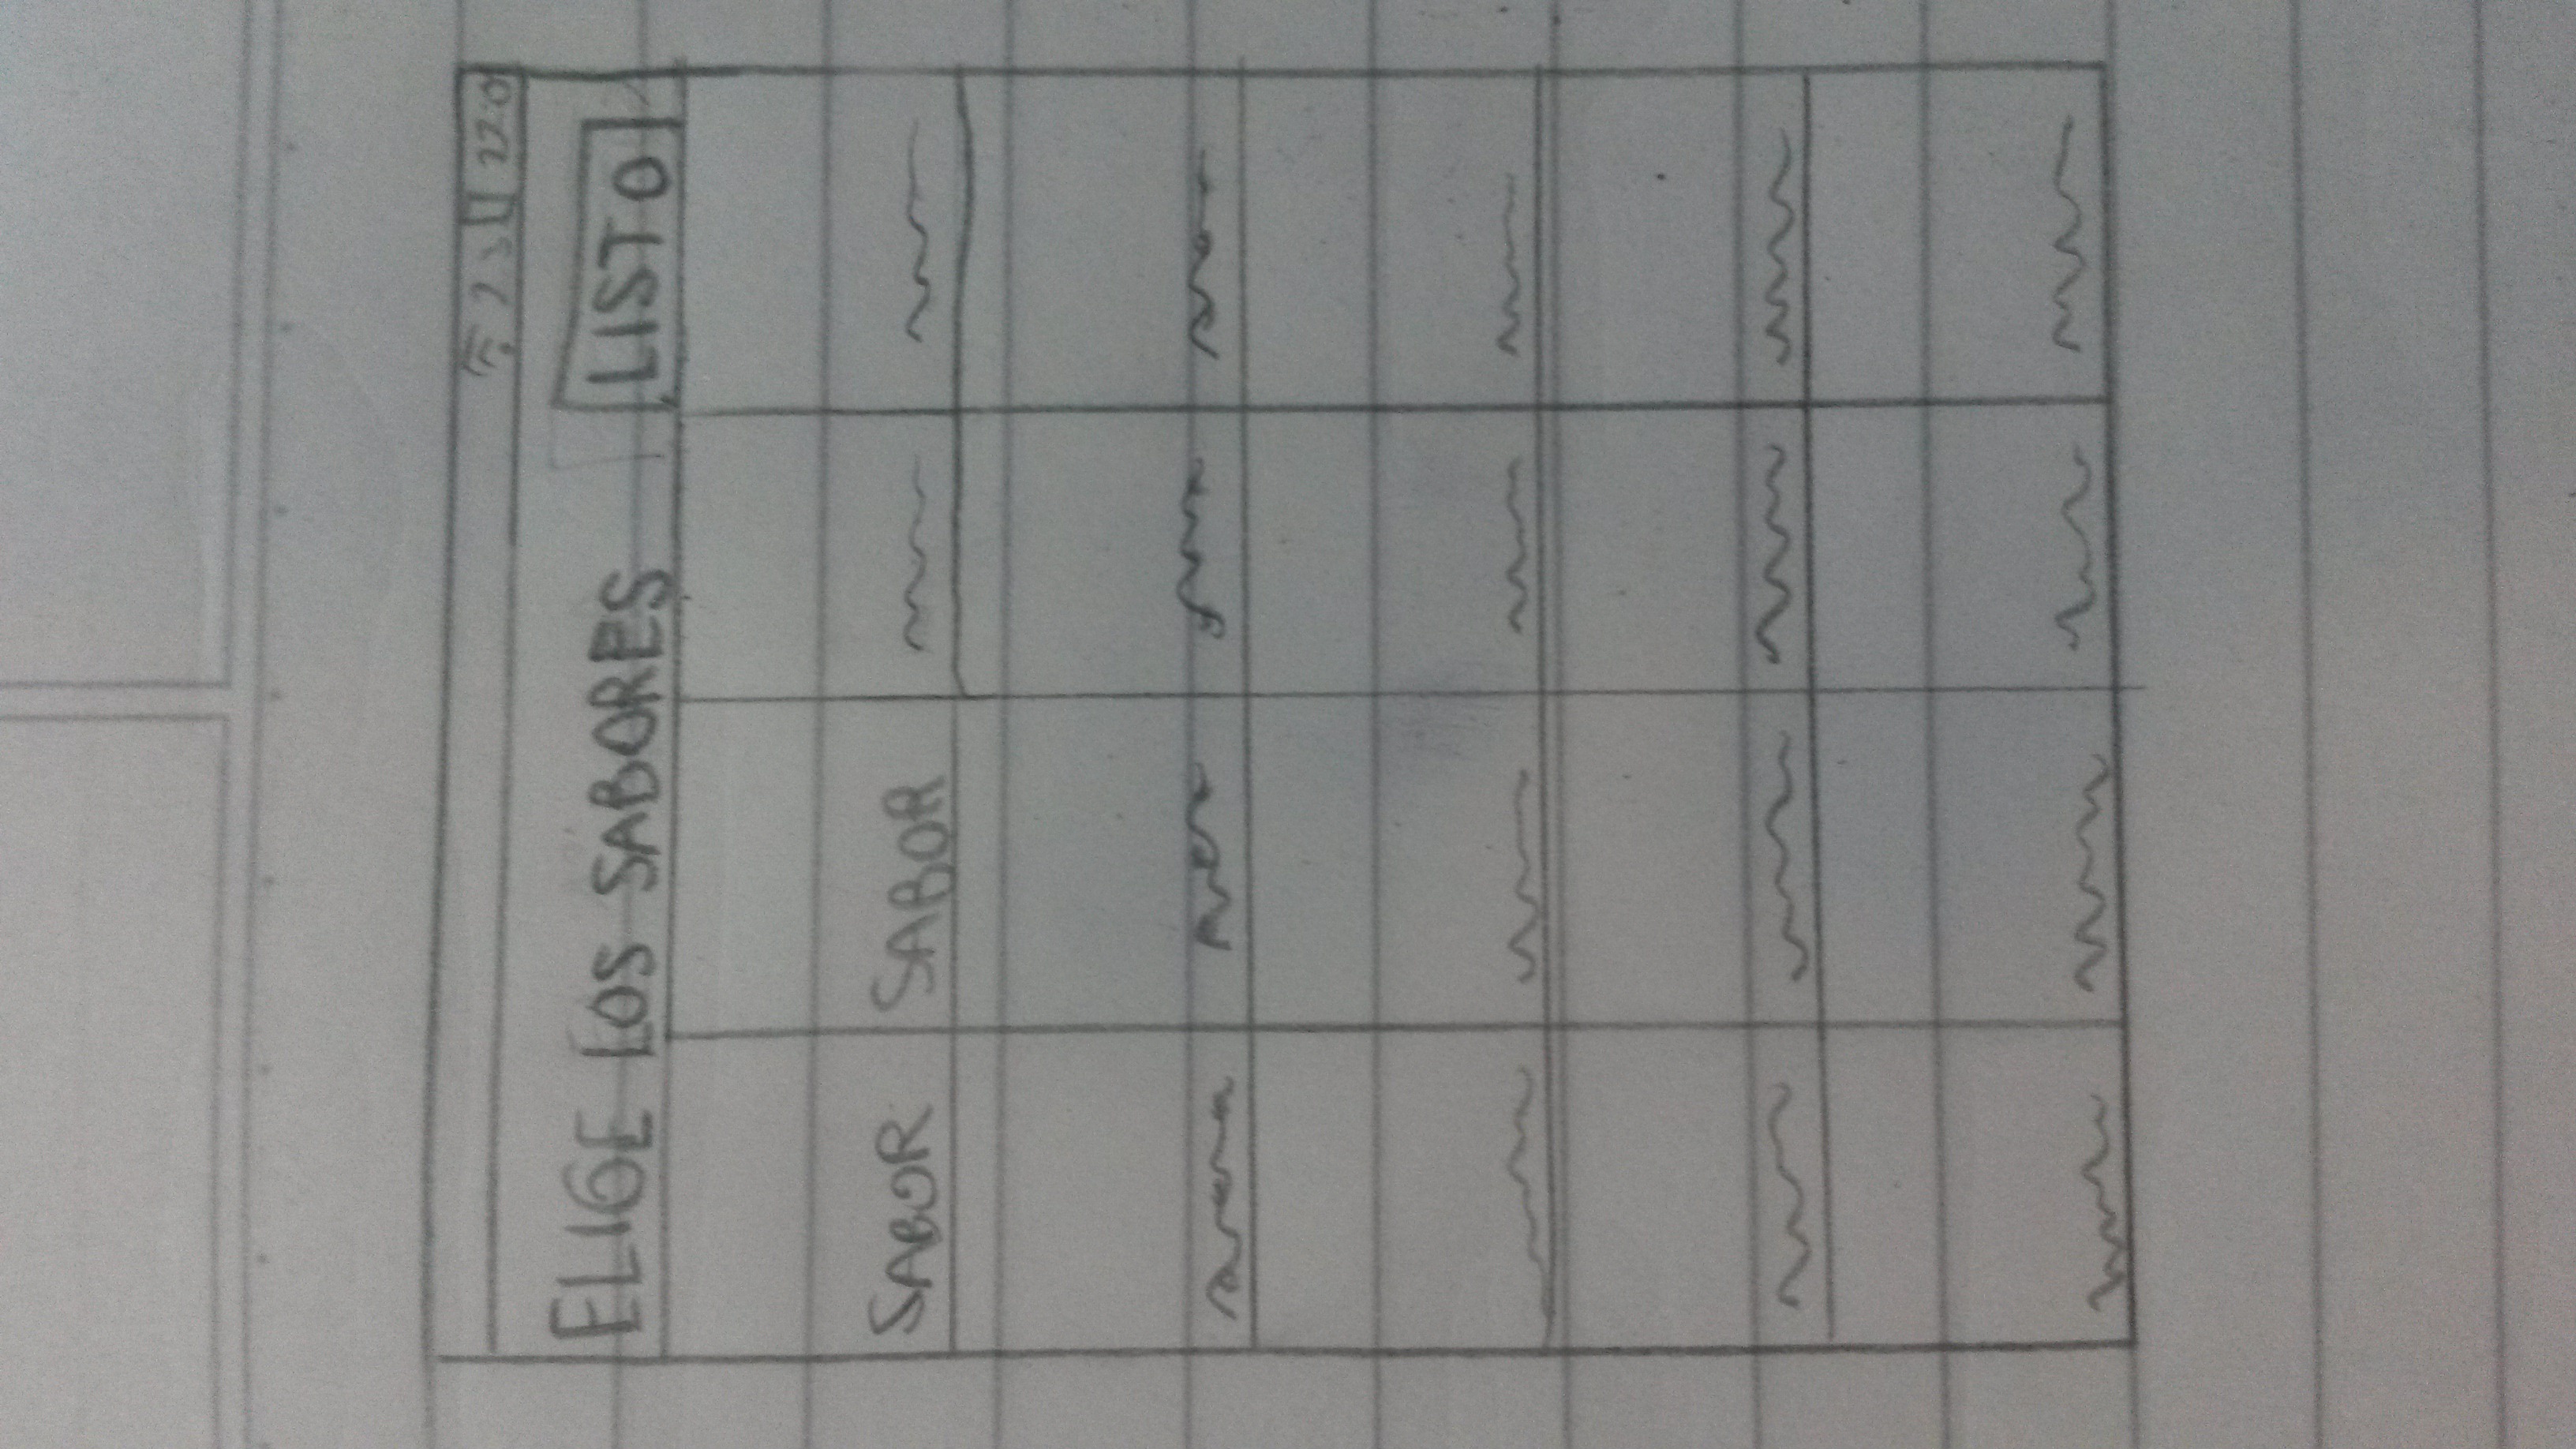 ELIGE LOS SABORES LISTO
SABOR SABOR